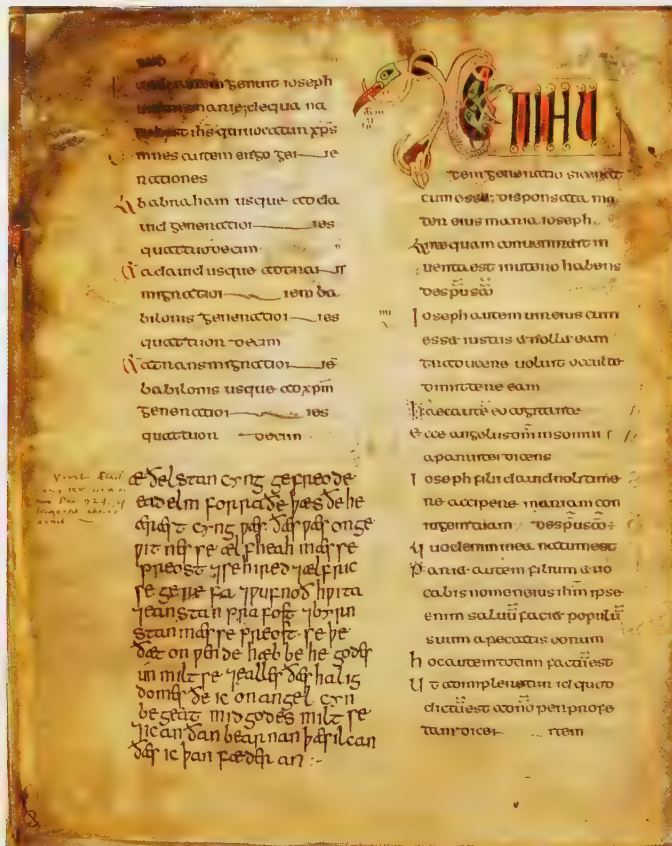 genuit ioseph
mariae de qua na
est ihs qui uocatur xps
mnes autem ergo
nationes
Ab habraham usque ad da
uid generation es
quattuordecim
A dauid usque ad trans
migration em ba
bilonis generation es
quattuor decim
A transmigration e
babilonis usque ad xpm
generation es
quattuor decim
æðelstan cyng gefreode
eadelm forraðe þæs ðe he
æræst cyng wæs ðæs wæs on ge
wit næs se ælfheah mæsse
preost ⁊ se hired ⁊ ælfric
se gerefa ⁊ wufnoð hwita
⁊ eanstan prafost ⁊ byrn
stan mæsse preost se þe
ðæt on wende hæbbe he godæs
un miltse ⁊ ealles ðæs halig
domæs ðe ic on angel cyn
begeat mid godes miltse
⁊ ic an ðan bearnan þæs ilcan
ðæs ic þan fædær an :-
XPI
autem generatio sic erat
cum esset disponsata ma
ter eius maria ioseph
Ante quam conuenirent in
uenta est in utero habens
de spu sco
Ioseph autem uir eius cum
esset iustus et nollet eam
traducere uoluit occulte
dimittere eam
Haec aute eo cogitante
Ecce angelus dni in somni
apparuit ei dicens
Ioseph fili dauid noli time
re accipere mariam con
iugem tuam de spu sco
Quod enim in ea natum est
Pariet autem filium et uo
cabis nomen eius ihm ipse
enim saluu faciet populu
suum a peccatis eorum
hoc autem totum factu est
Ut adimpleretur id quod
dictu est a dno per profe
tam dicen tem